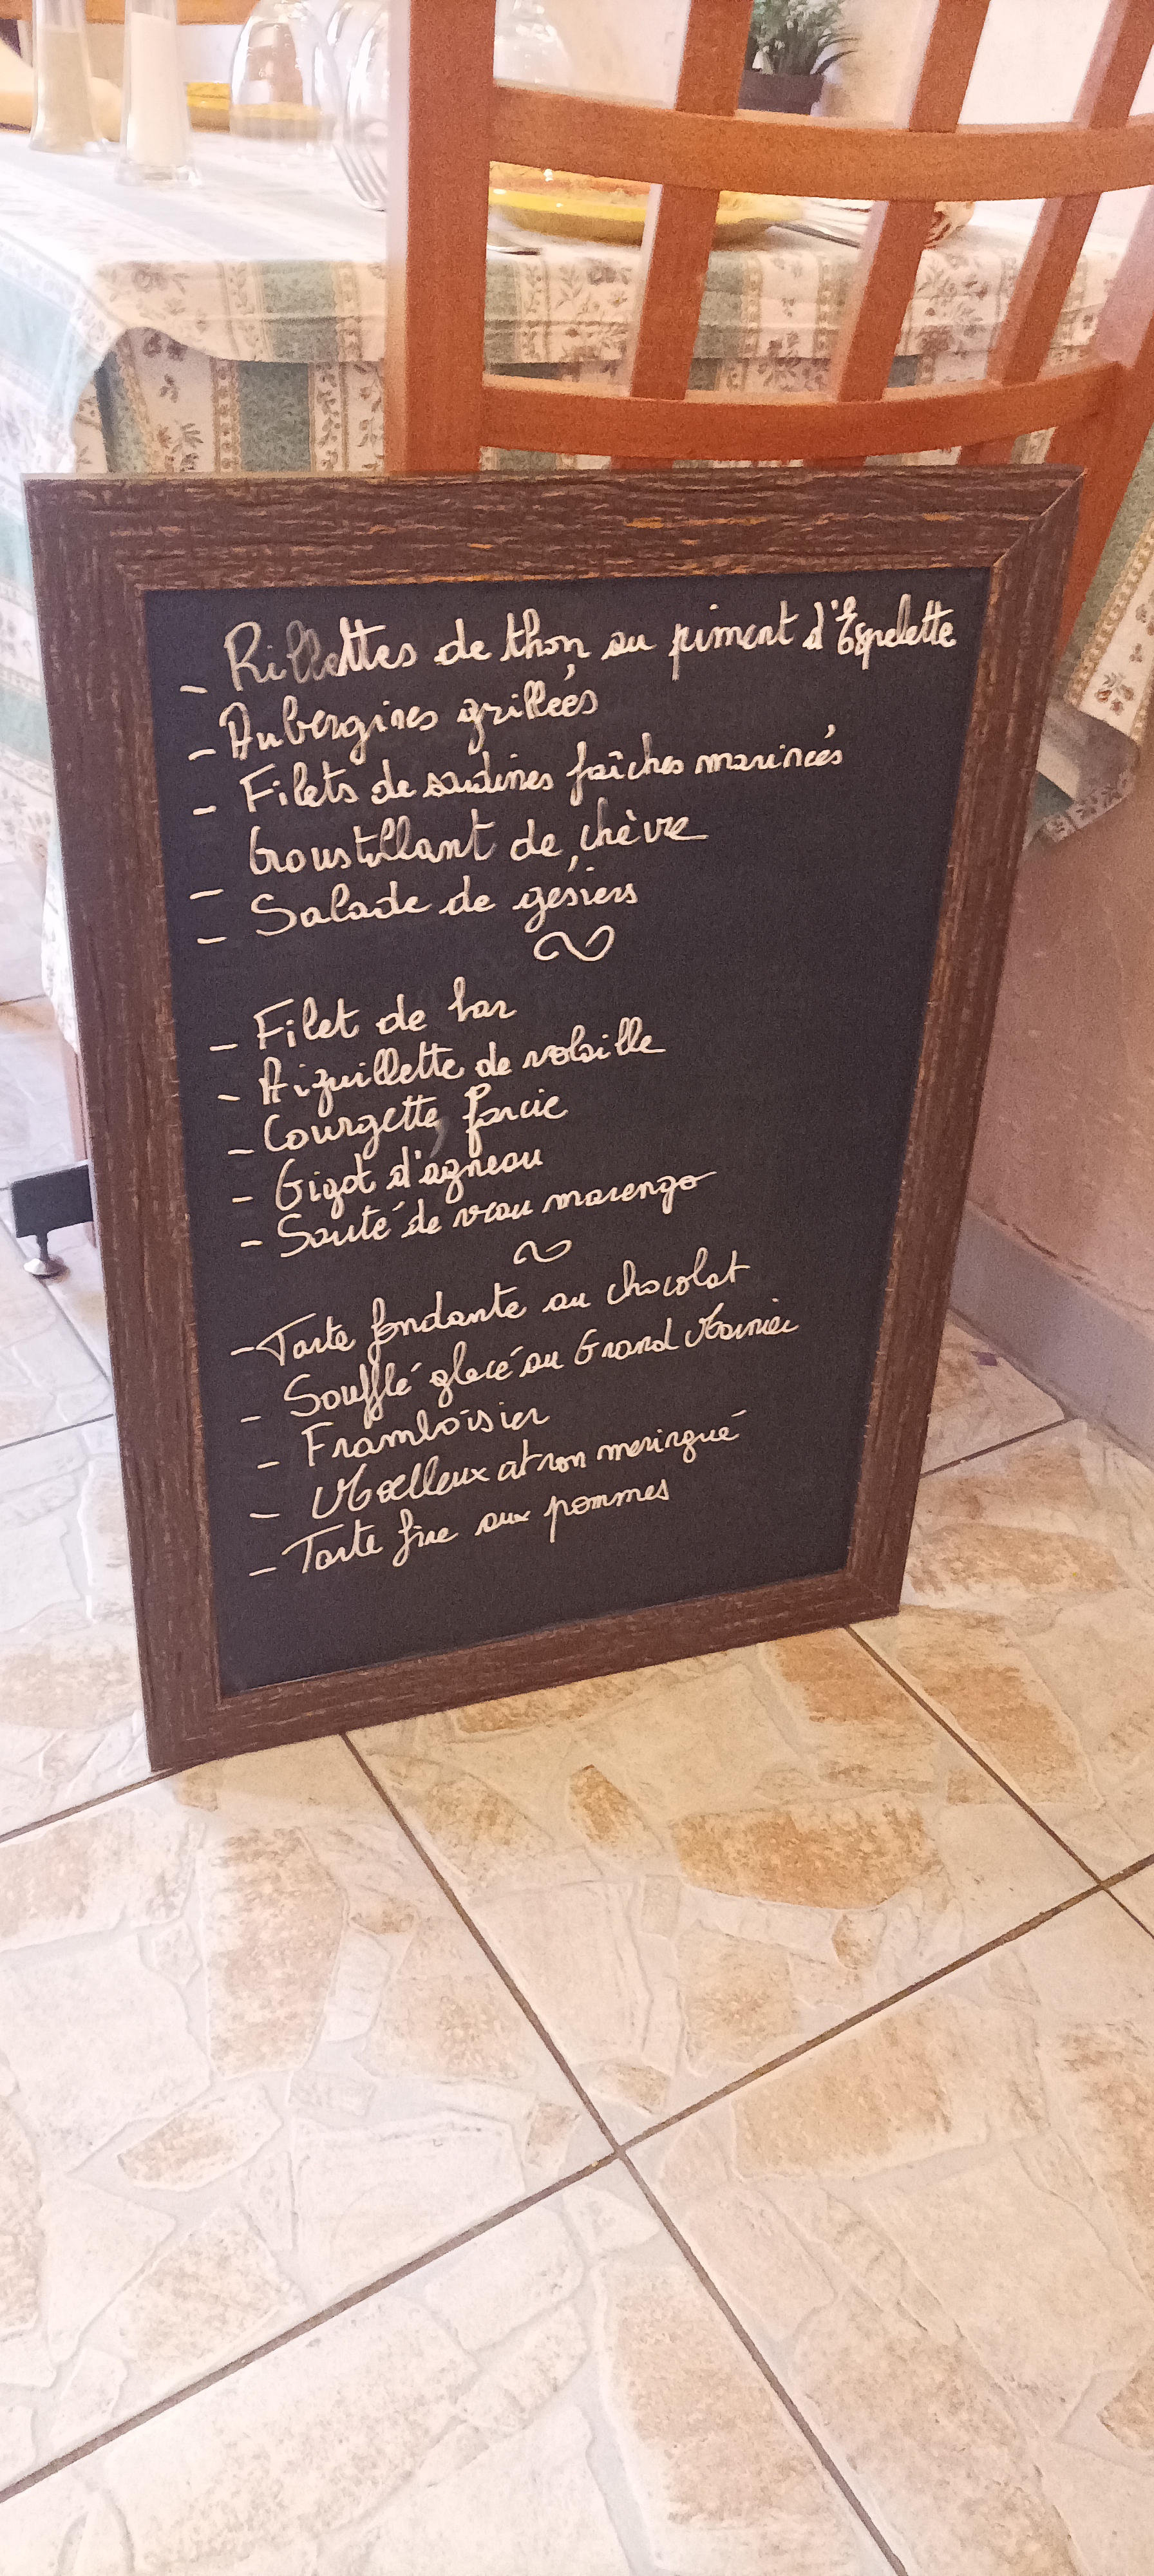 - Rillettes de thon au piment d'Espelette
- Aubergines grillées
- Filets de sardines fraîches marinées
- Croustillant de chèvre
- Salade de gésiers
- Filet de bar
- Aiguillette de volaille
- Courgette farcie
- Gigot d'agneau
- Sauté de veau marengo
- Tarte fondante au chocolat
- Soufflé glacé au Grand Marnier
- Framboisier
- Moelleux citron meringué
- Tarte fine aux pommes